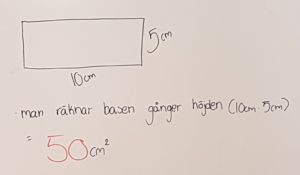 5cm
10cm
man räknar basen gånger höjden (10cm · 5cm)
= 50cm²